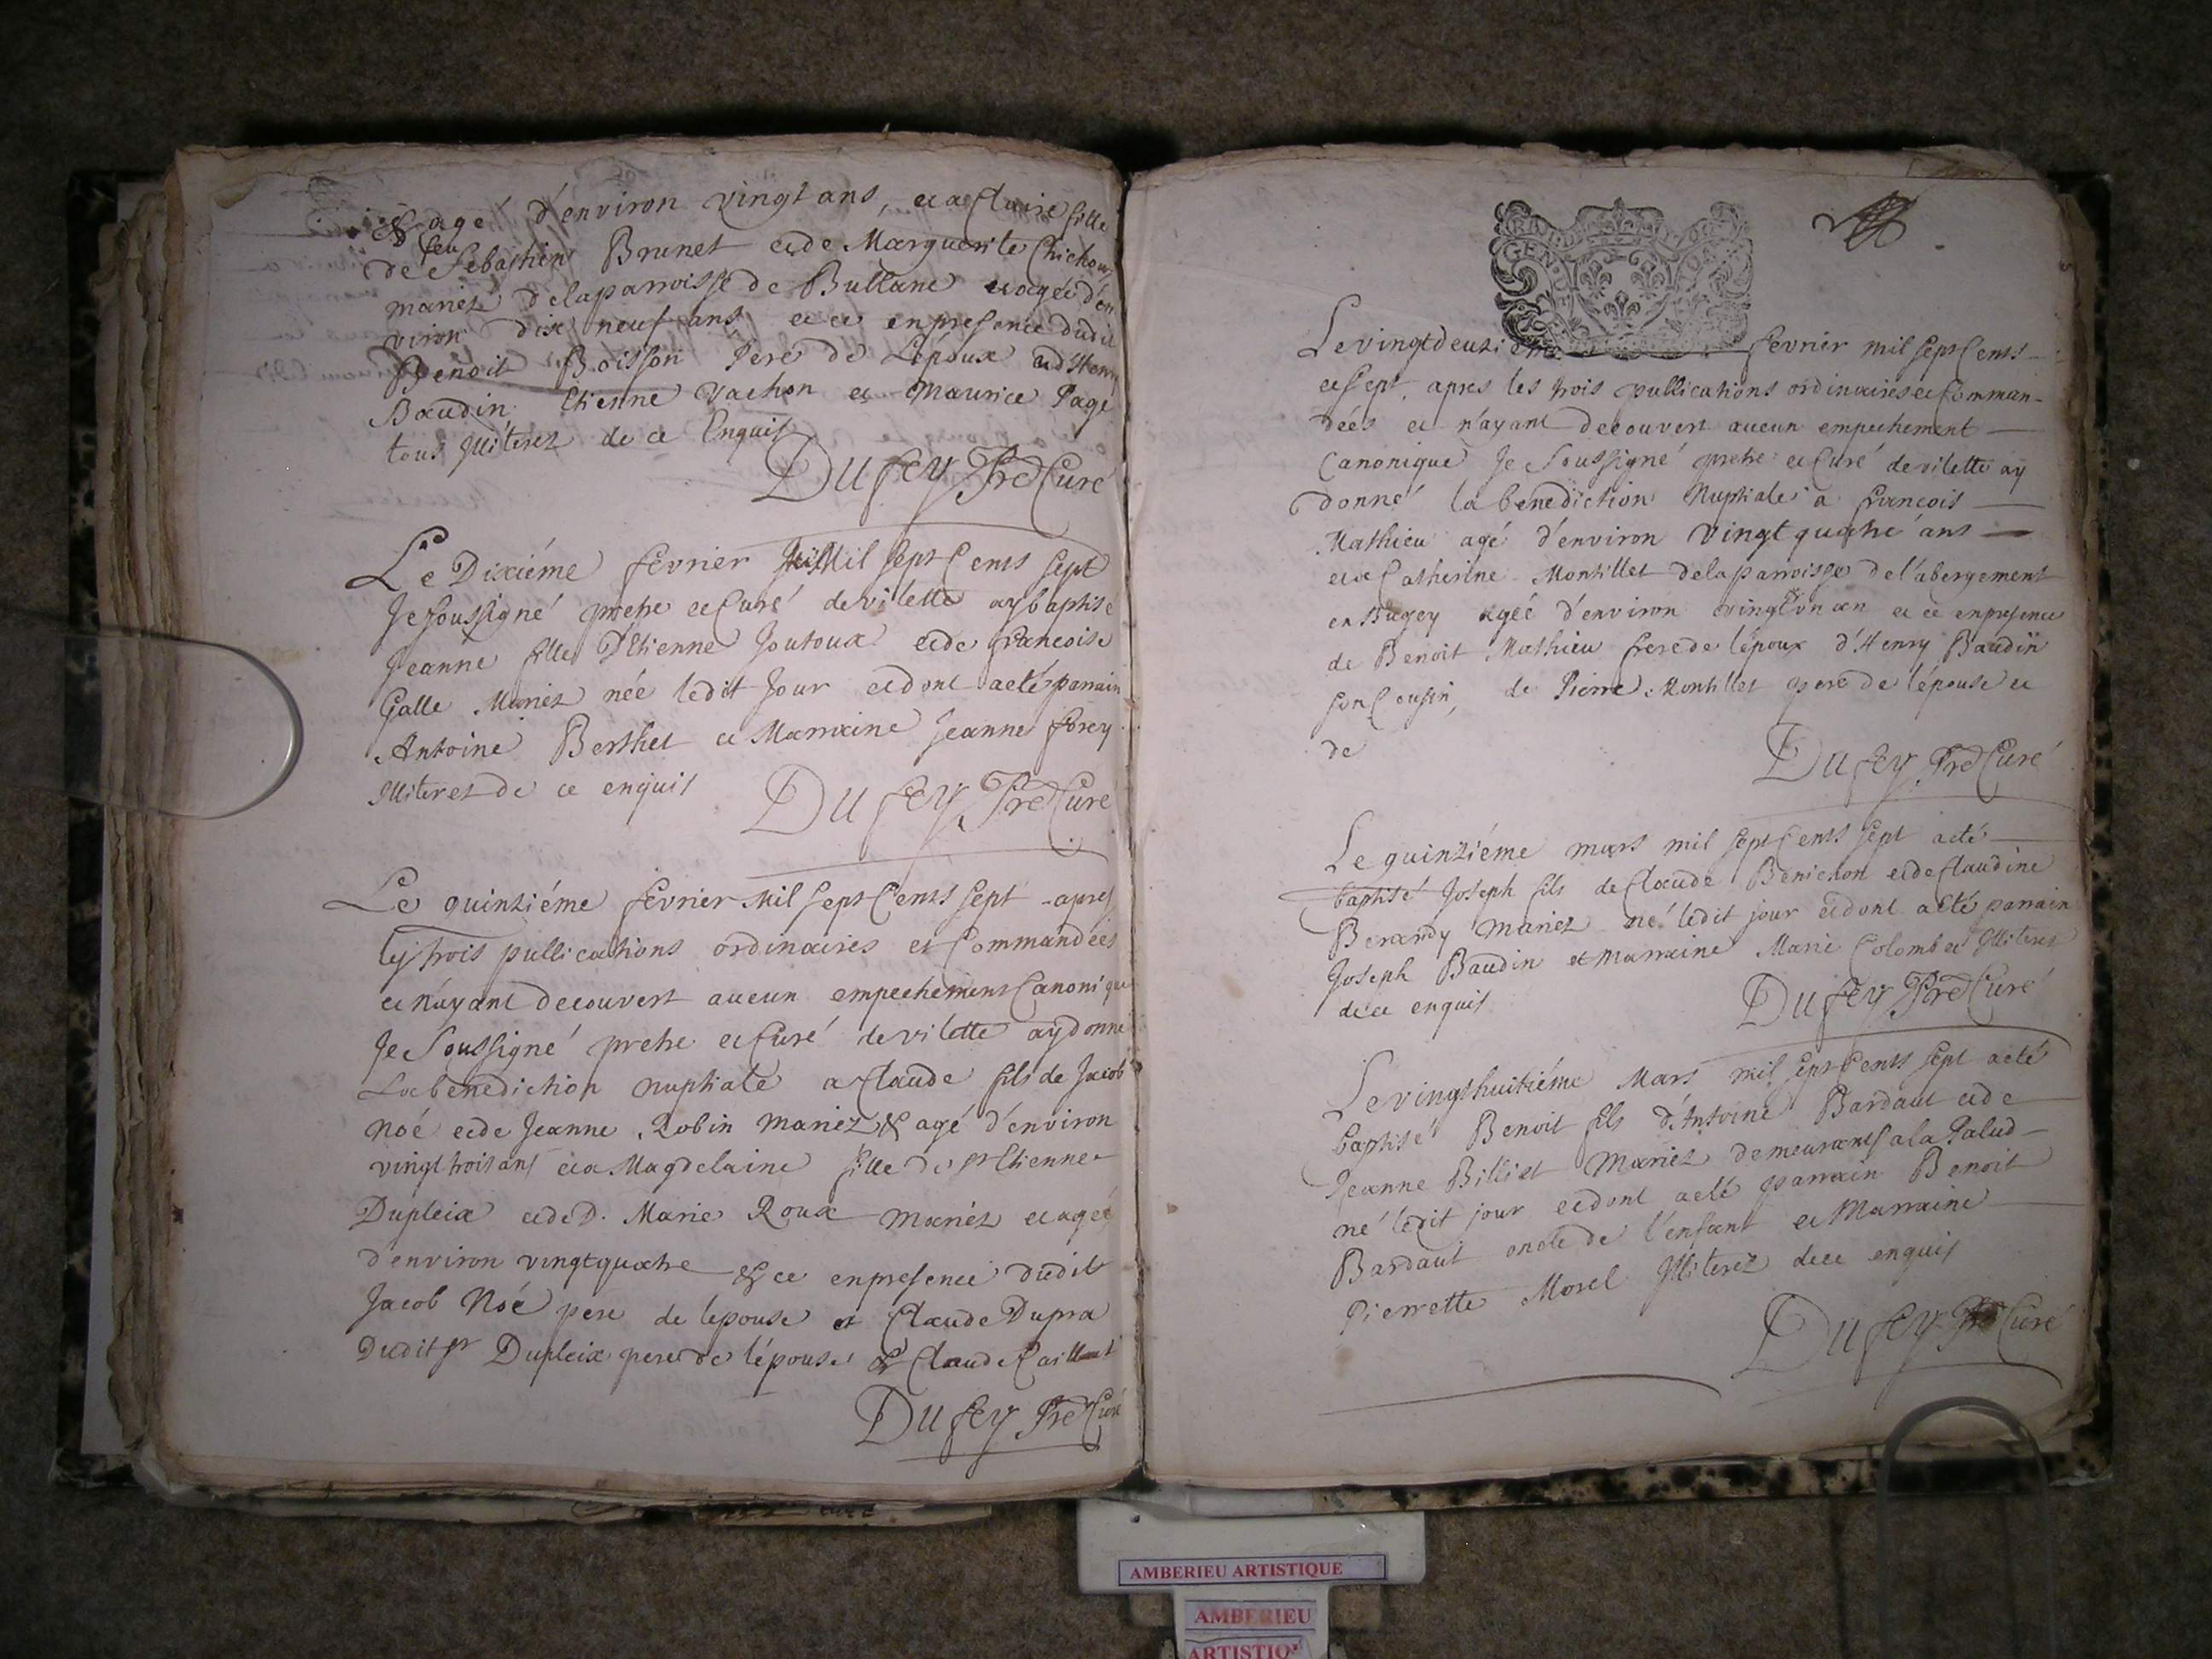 & agé d'environ vingt ans, et a Claire fille
de feu Sebastien Brunet et de Marguerite Chichoux
mariéz de la parroisse de Bullane et agée d'en
viron dix neuf ans et ce en presence dudit
Benoit Boisson Pere de L'époux et d'Henry
Baudin Etienne Vachon et Maurice Pagé
tous Illiterez de ce Enquis
Dufey Pre Curé
Le Dixiéme fevrier Mil sept Cents sept
Je soussigné pretre et Curé de vilette ay baptisé
Jeanne fille D'Etienne Joutoux et de francoise
Galle Mariez née ledit Jour et dont a eté parrain
Antoine Berthet et Marraine Jeanne forey
Illiterez de ce enquis Dufey Pre Curé
Le quinziéme fevrier Mil sept Cents sept apres
les trois pullications ordinaires et Commandées
et n'ayant decouvert aucun empechement Canonique
Je Soussigné pretre et Curé de vilette ay donné
La benediction nuptiale a Claude fils de Jacob
Noé et de Jeanne Robin Mariez & agé d'environ
vingt trois ans et a Magdelaine fille de sr Etienne
Dupleix et de D. Marie Roux mariez et agée
d'environ vingt quatre & ce en presence dudit
Jacob Noé pere de lepouse et Claude Dupra
Dudit sr Dupleix pere de l'épouse & Claude Caillat
Dufey Pre Curé
GEN
Le vingt deuzieme fevrier mil sept Cents
et sept, apres les trois pullications ordinaires et Comman-
dées et n'ayant decouvert aucun empechement
Canonique Je Soussigné pretre et Curé de vilette ay
donné la benediction Nuptiale a francois
Mathieu agé d'environ Vingt quatre ans
et a Catherine Montillet de la parroisse de l'abergement
en Bugey agée d'environ vingt un an et ce en presence
de Benoit Mathieu frere de l'époux d'Henry Baudin
son Cousin, de Pierre Montillet pere de l'épouse et
de
Dufey Pre Curé
Le quinziéme mars mil sept Cents sept a eté
baptisé Joseph fils de Claude Benichon et de Claudine
Berardy Mariez né ledit jour et dont a eté parrain
Joseph Baudin et marraine Marie Colomb et Illiterez
de ce enquis
Dufey Pre Curé
Le vingt huitiéme Mars mil sept Cents sept a eté
baptisé Benoit fils d'Antoine Bardaut et de
Jeanne Billiet Mariez demeurants a la Palud
né ledit jour et dont a eté parrain Benoit
Bardaut oncle de l'enfant et Marraine
Pierrette Morel Illiterez de ce enquis
Dufey Pre Curé
AMBERIEU ARTISTIQUE
AMBERIEU
ARTISTIQ